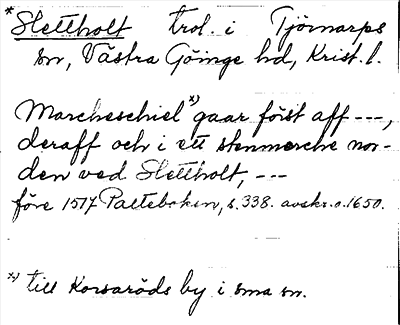 * Slettholt trol. i Tjörnarps
sn, Västra Göinge hd, Krist. l.
Marcheschiel *) gaar först aff ---,
deraff och i ett stenmerche nor-
den ved Slettholt, ---
före 1517 Palteboken, s. 338. avskr. o. 1650.
*) till Korsaröds by i sma sn.